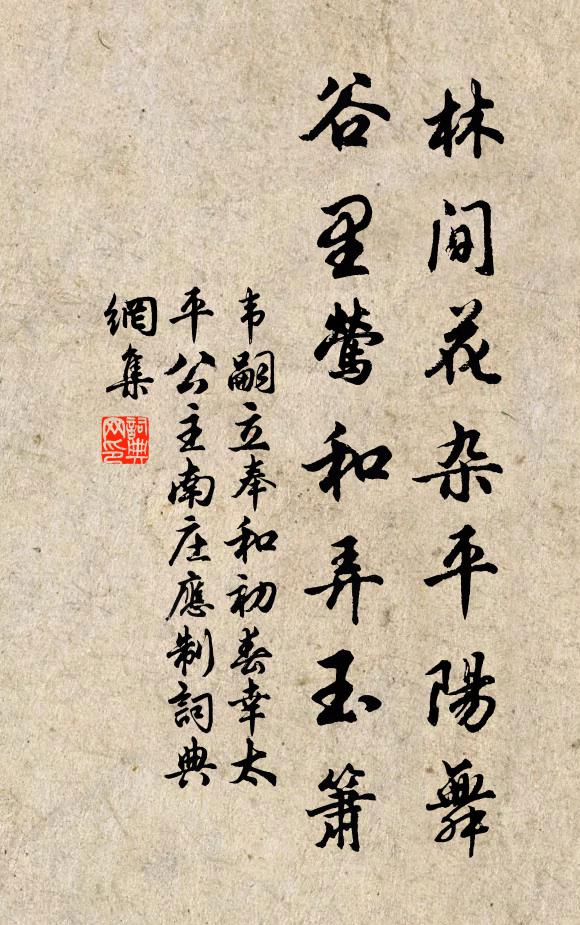 林間花杂平陽舞
谷里鶯和弄玉簫
韦嗣立奉和初春幸太
平公主南庄應制詞典
網集
詞典
网印